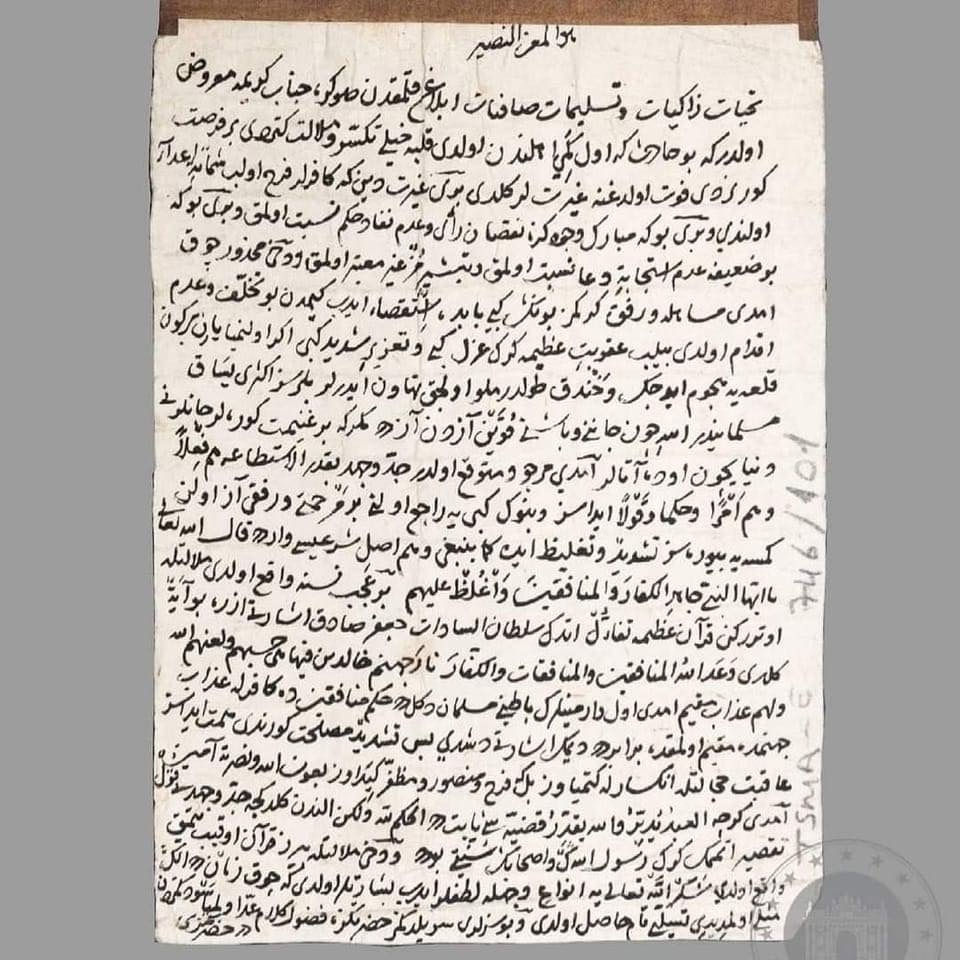 هو المعز النصیر
تحیات زاکیات و تسلیمات صافیات ابلاغ قلمقدن صوکره جناب کریمه معروض
اولدر که بو حادثه که اول کمی اهلندن اولدی قلبه خیلی تکسر و ملالت کتوردی بر فرصت
کورندی فوت اولدغنه غیرت لر کلدی بری غیرت دین که کافرلر فرح اولب شماتة اعدا
اولندی و بری بو که مبارک وجوهکزه نقصان رأی و عدم نفاد حکم نسبت اولمق و بری بو که
بو ضعیفه عدم استجابة دعا نسبت اولمق و تبشیرمز اولمق و دخی محذور چوق
امدی مساهله و رفق کرکمز بونک کبی بابده استقصاء ایدب کیمدن بو تخلف و عدم
اقدام اولدی بیلب عقوبت عظیمه کرک عزل کبی و تعزیر شدید کبی اکر اولنمیا یارن برکون
قلعه یه هجوم ایدیجک و خندق طولدرملو اولجق تهاون ایدرلر بلورسز اکثری یساق
مسلمانیدر الله ایچون جاننی و باشنی قوین آزدن آزدر مکر که بر غنیمت کوره لر جانلرنی
دنیا یچون اوده آتالر امدی مرجو و متوقع اولدر جد و جهد بقدر الاستطاعه هم فعلاً
و هم امراً و حکما و قولاً ایدەسز و بنوک کبی یه راجع اولنی بر مرحمتی و رفقی آز اولن
کمسه یه بیوره سز تشدید و تغلیظ ایده کما ینبغی و هم اصل شرعیسی وار در قال الله تعالی
یا ایها النبی جاهد الکفار و المنافقین و اغلظ علیهم بر عجب نسنه واقع اولدی ملالتله
اوتررکن قرآن عظیمه تفأل اتدک سلطان السادات جعفر صادق اشارتی ازره بو آیة
کلدی وعد الله المنافقین والمنافقات والکفار نار جهنم خالدین فیها هی حسبهم ولعنهم الله
ولهم عذاب مقیم امدی اول باطنی مسلمان دکل در حکم منافقین ده کافرله عذاب
جهنمده مقیم اولمقده برابر در دیمک اشارتی دشدی پس تشدیده مصلحت کورندی همت ایدەسز
عاقبت خجالتله انکسارله کتمیاوز بلکه فرح و منصور و مظفر کیدەوز بعون الله و نصرته آمین
امدی کرچه العبد یدبر والله یقدر قضیه سی ثابت در الحکم لله ولکن الندن کلدکجه جد و جهدده قول
تقصیر اتممک کرک رسول الله ک و اصحابنک سنتی بودر و دخی ملالتله برز قرآن اوقیب یتمق
واقع اولدی شکر الله تعالی یه انواع لطفلر ایدب بشارتلر اولدی که چوق زماندر انک
مثلی اولمدی تسلی تام حاصل اولدی بو سزلری سویلدکمز حضرتکزه فضول کلام عد اولنمیا سودکمزدندر
حضرتکزی
TSMA-E 746/101